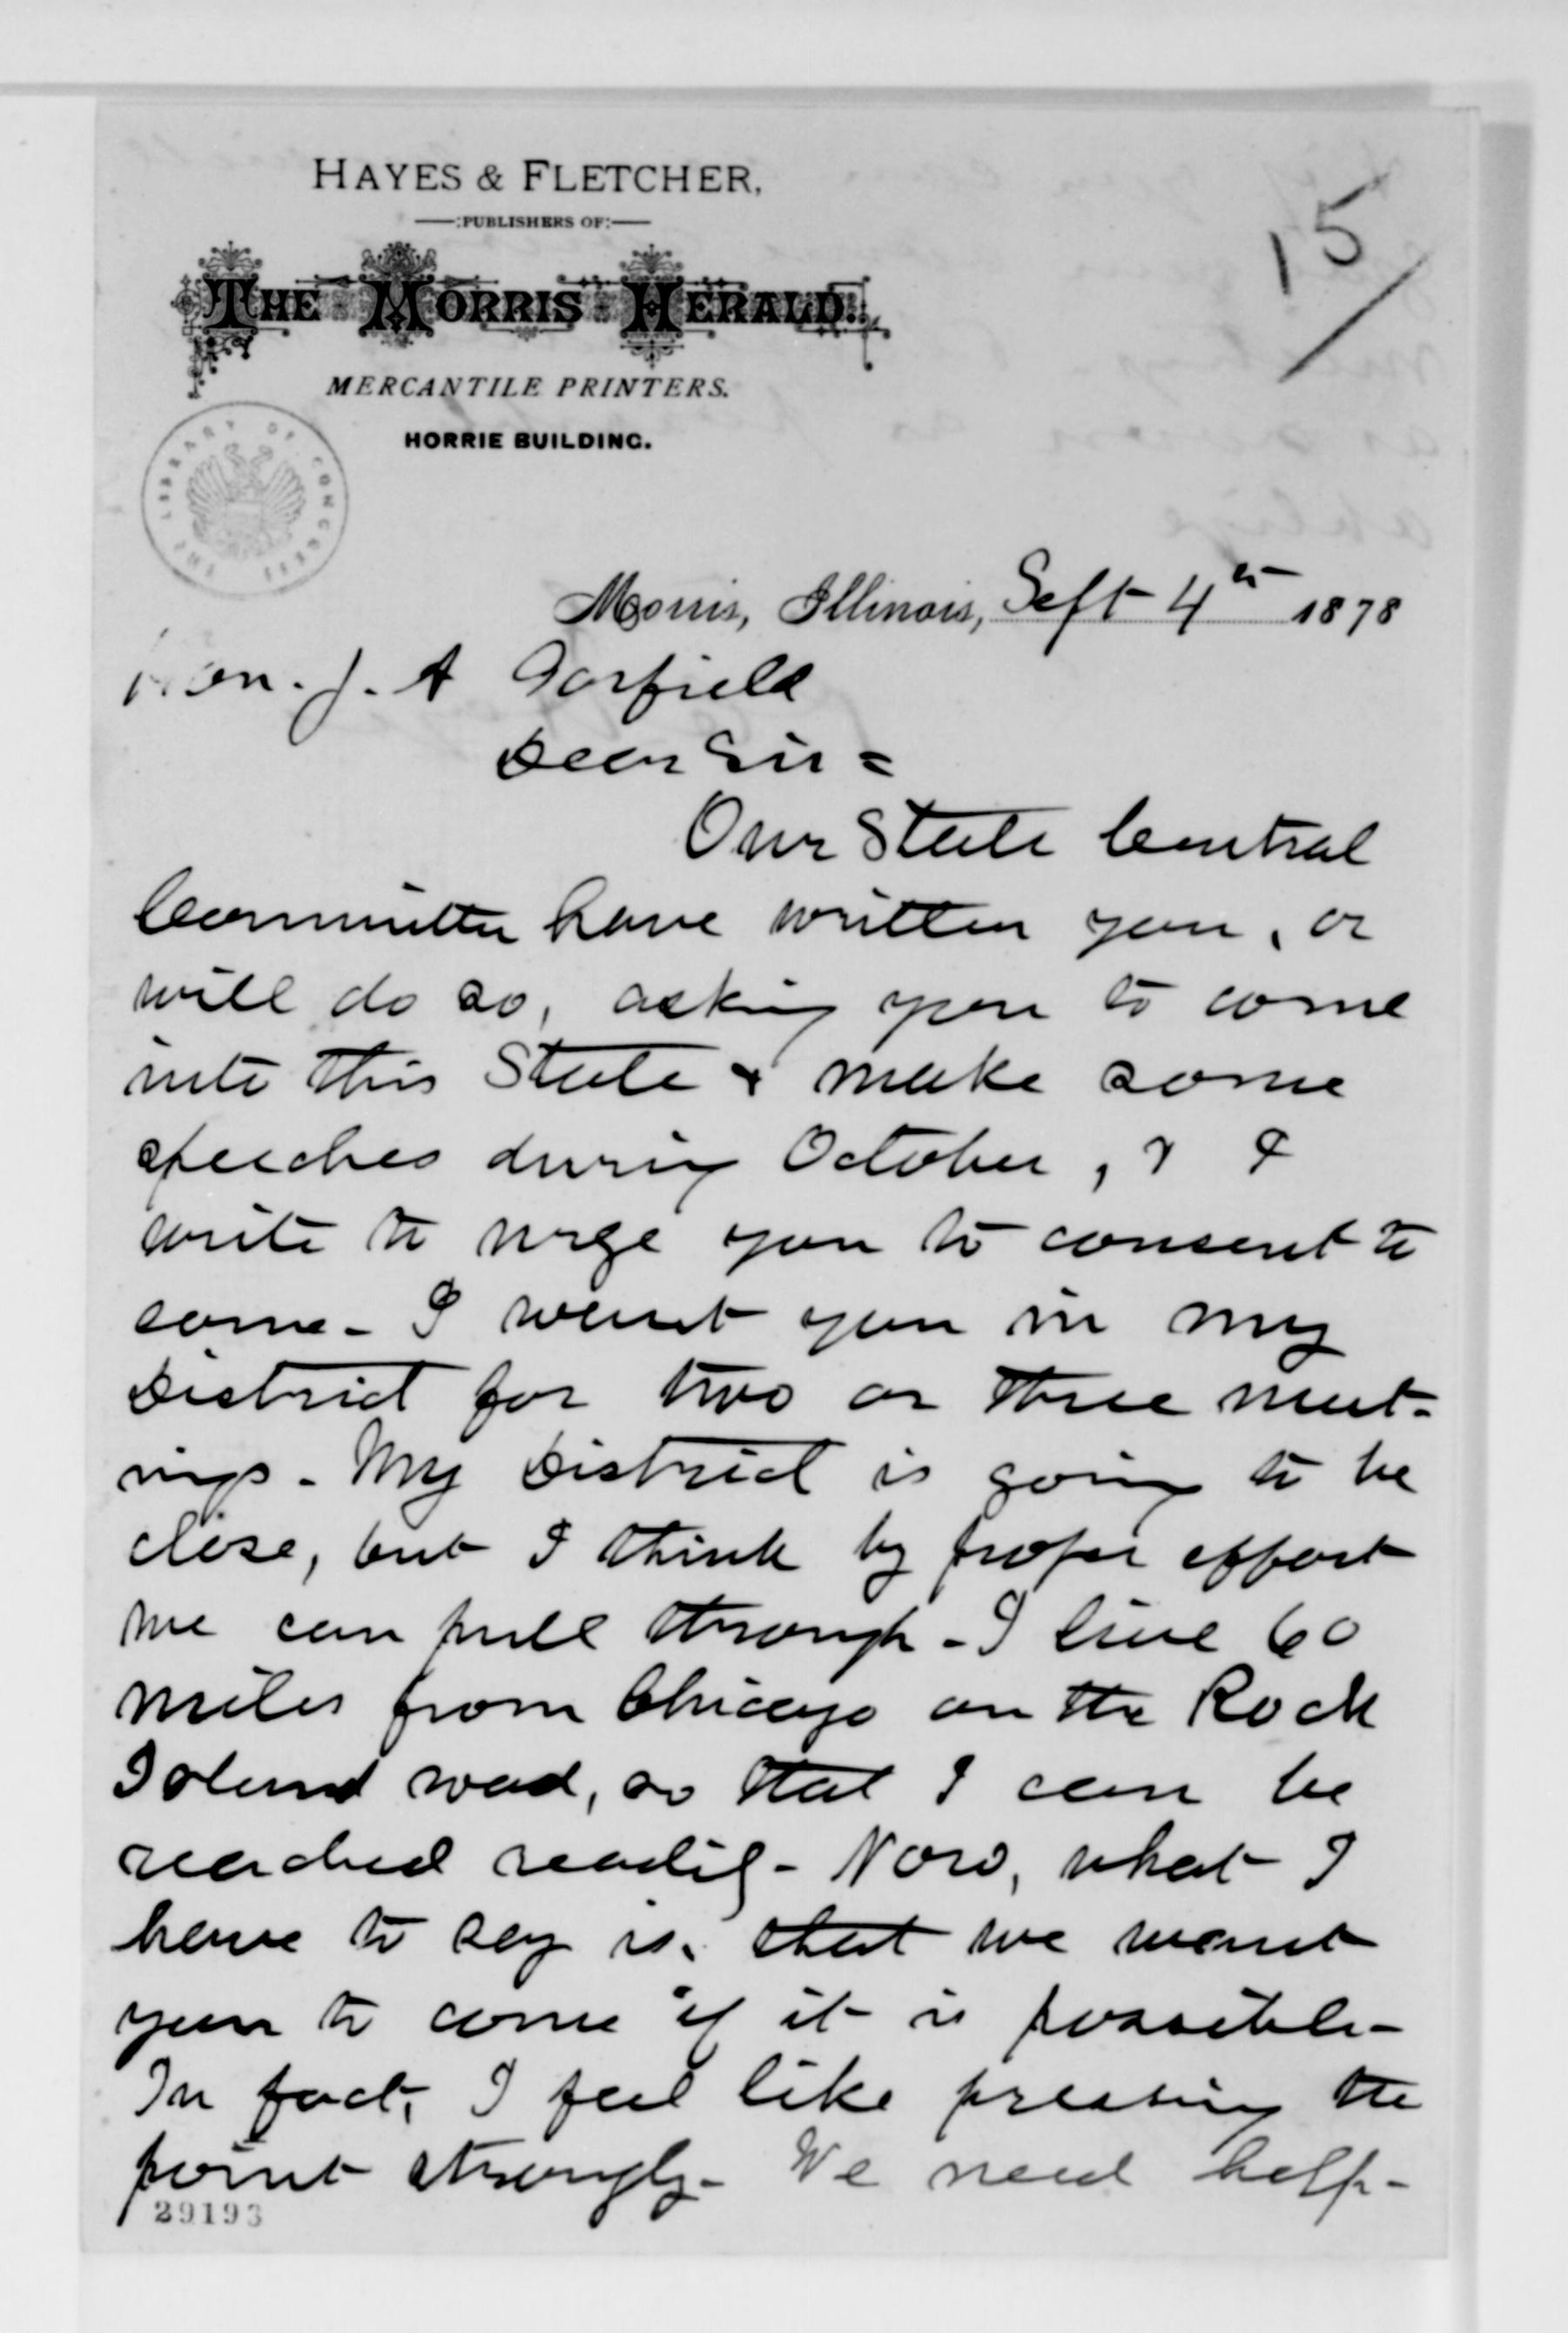 HAYES & FLETCHER,
:PUBLISHERS OF:
THE MORRIS HERALD.
MERCANTILE PRINTERS.
HORRIE BUILDING.
15/
THE LIBRARY OF CONGRESS
Morris, Illinois, Sept 4th 1878
Hon. J. A Garfield
Dear Sir =
Our State Central
Committee have written you, or
will do so, asking you to come
into this State & make some
speeches during October, & I
write to urge you to consent to
come - I want you in my
District for two or three meet-
ings - My District is going to be
close, but I think by proper effort
we can pull through - I live 60
miles from Chicago on the Rock
Island road, so that I can be
reached readily - Now, what I
have to say is, that we want
you to come if it is possible -
In fact, I feel like pressing the
point strongly - We need help -
29193